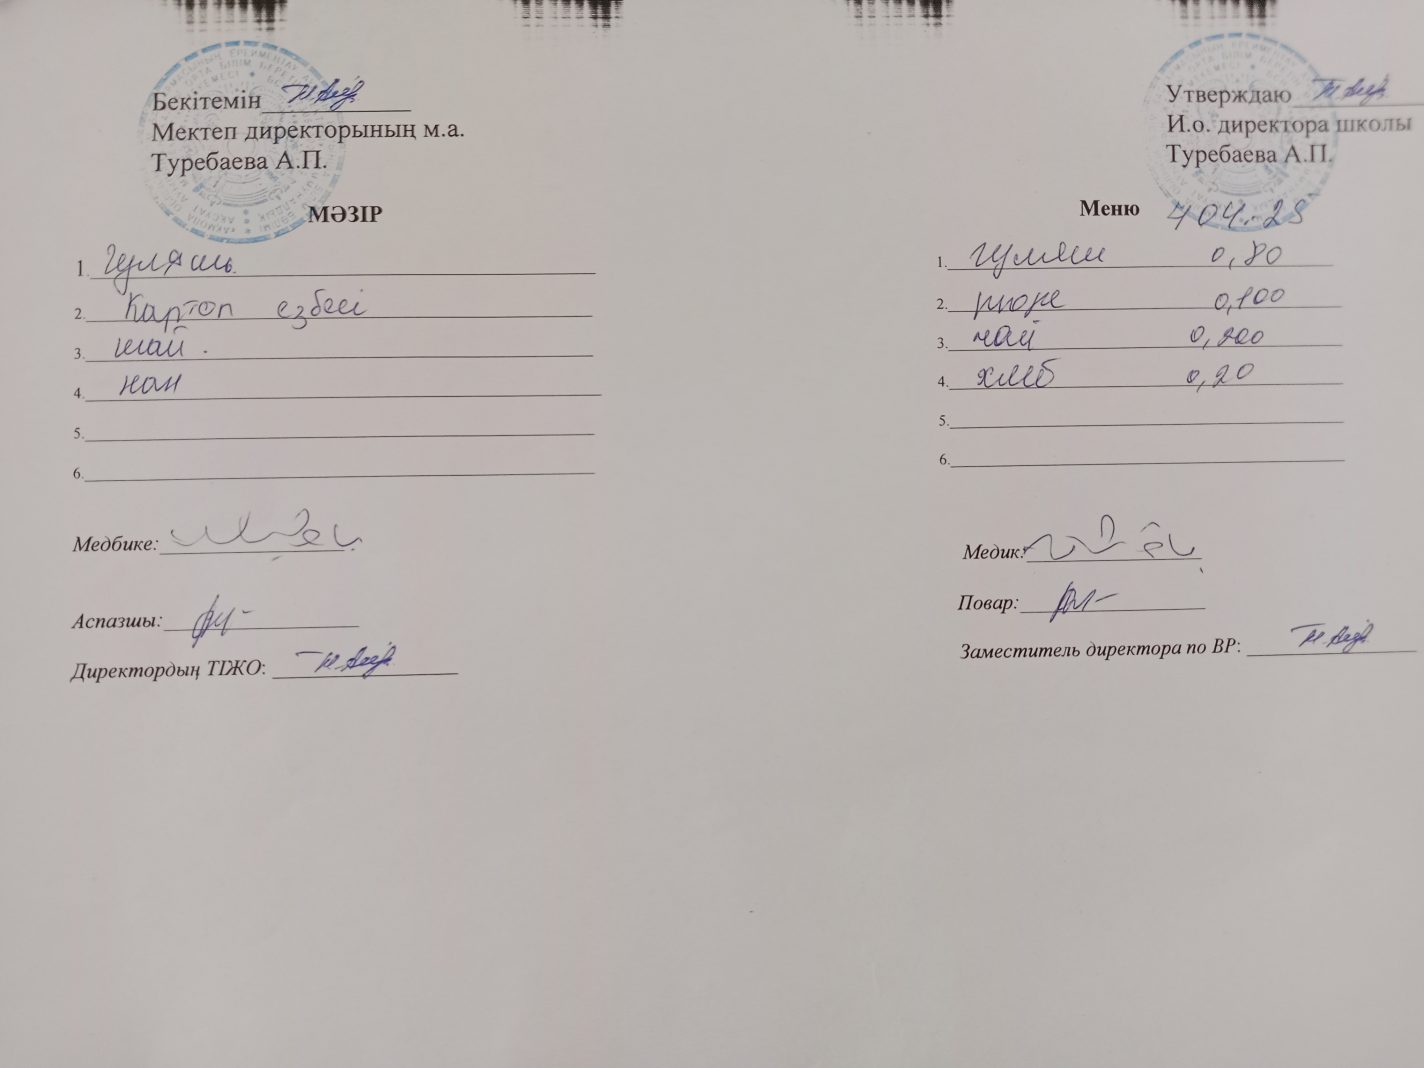 Бекітемін
Мектеп директорының м.а.
Туребаева А.П.
МӘЗІР
1. Гуляшь
2. Картоп езбесі
3. шай.
4. нан
5.
6.
Медбике:
Аспазшы:
Директордың ТІЖО:
Утверждаю
И.о. директора школы
Туребаева А.П.
Меню 404.-25
1. гуляш 0,80
2. пюре 0,100
3. чай 0,200
4. хлеб 0,20
5.
6.
Медик:
Повар:
Заместитель директора по ВР: